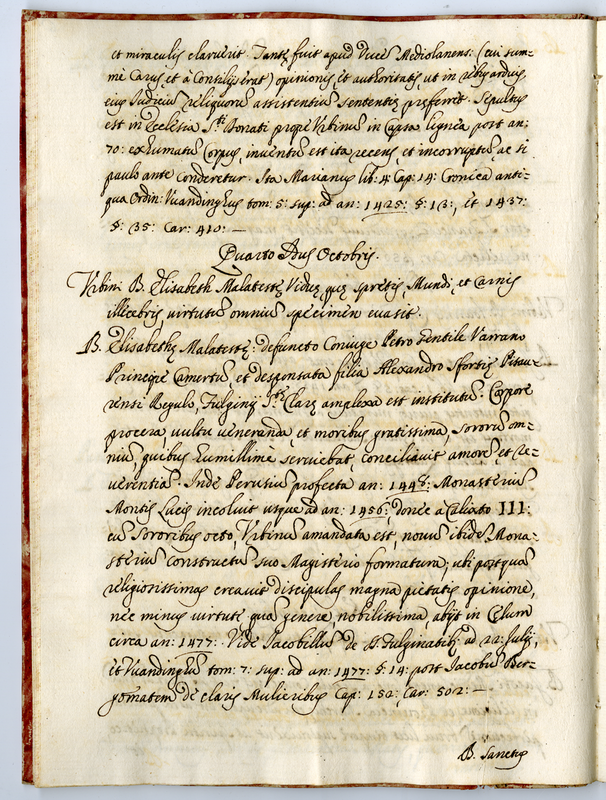 et miraculis claruerit. Tantę fuit apud Duces Mediolanens: (cui sum-
mè Carus, et à Consilijs erat) opinionis, et authoritatis, ut in rebus arduis
eius Judiciũ reliquorũ assistentiũ sententijs pręferret. Sepultus
est in Ecclesia S.ti Donati propè Vrbinũ in Capsa lignea, post an:
70: exhumatũ Corpus, inventũ est ita recens, et incorruptũ, ac si
paulo ante Conderetur. Ita Marianus lib: 4: Cap: 14: Cronica anti-
qua Ordin: Vuandinghus tom: 5: sup: ad an: 1425: §: 13:, et 1437:
§: 35: Car: 410: —
Quarto Idus Octobris.
Vrbin: B. Elisabeth Malatestę Viduę, quę spretis, Mundi, et Carnis
illecebris, virtutũ omniũ specimen evasit.
B. Elisabetha Malatestę: defuncto Coniuge Petro Gentile Varrano
Principe Camertũ, et desponsata filia Alexandro Sfortię Pisau-
rensi Regulo, Fulginij S.tę Clarę amplexa est institutũ. Corpore
procera, vultu veneranda, et moribus gratissima, sororũ om-
niũ, quibus humillimè serviebat, conciliavit amorẽ, et re-
verentiã. Inde Perusiũ profecta an: 1448: Monasteriũ
Montis Lucis incoluit usque ad an: 1456:, donec a Calixto III:
cũ Sororibus octo, Vrbinũ amandata est, novũ ibidẽ Mona-
steriũ constructũ suo Magisterio formatura; ubi postquã
religiosissimas creavit discipulas magna pietatis opinione,
nec minus virtute quã genere, nobilissima, abijt in Cęlum
circa an: 1477: Vide Jacobillũ de SS. Fulginatib; ad 22: Julij,
et Vuandinghũ tom: 7: sup: ad an: 1477: §: 14: post Jacobũ Ber-
gomatem de claris Mulieribus Cap: 152: Car: 502: —
B. Sanctus